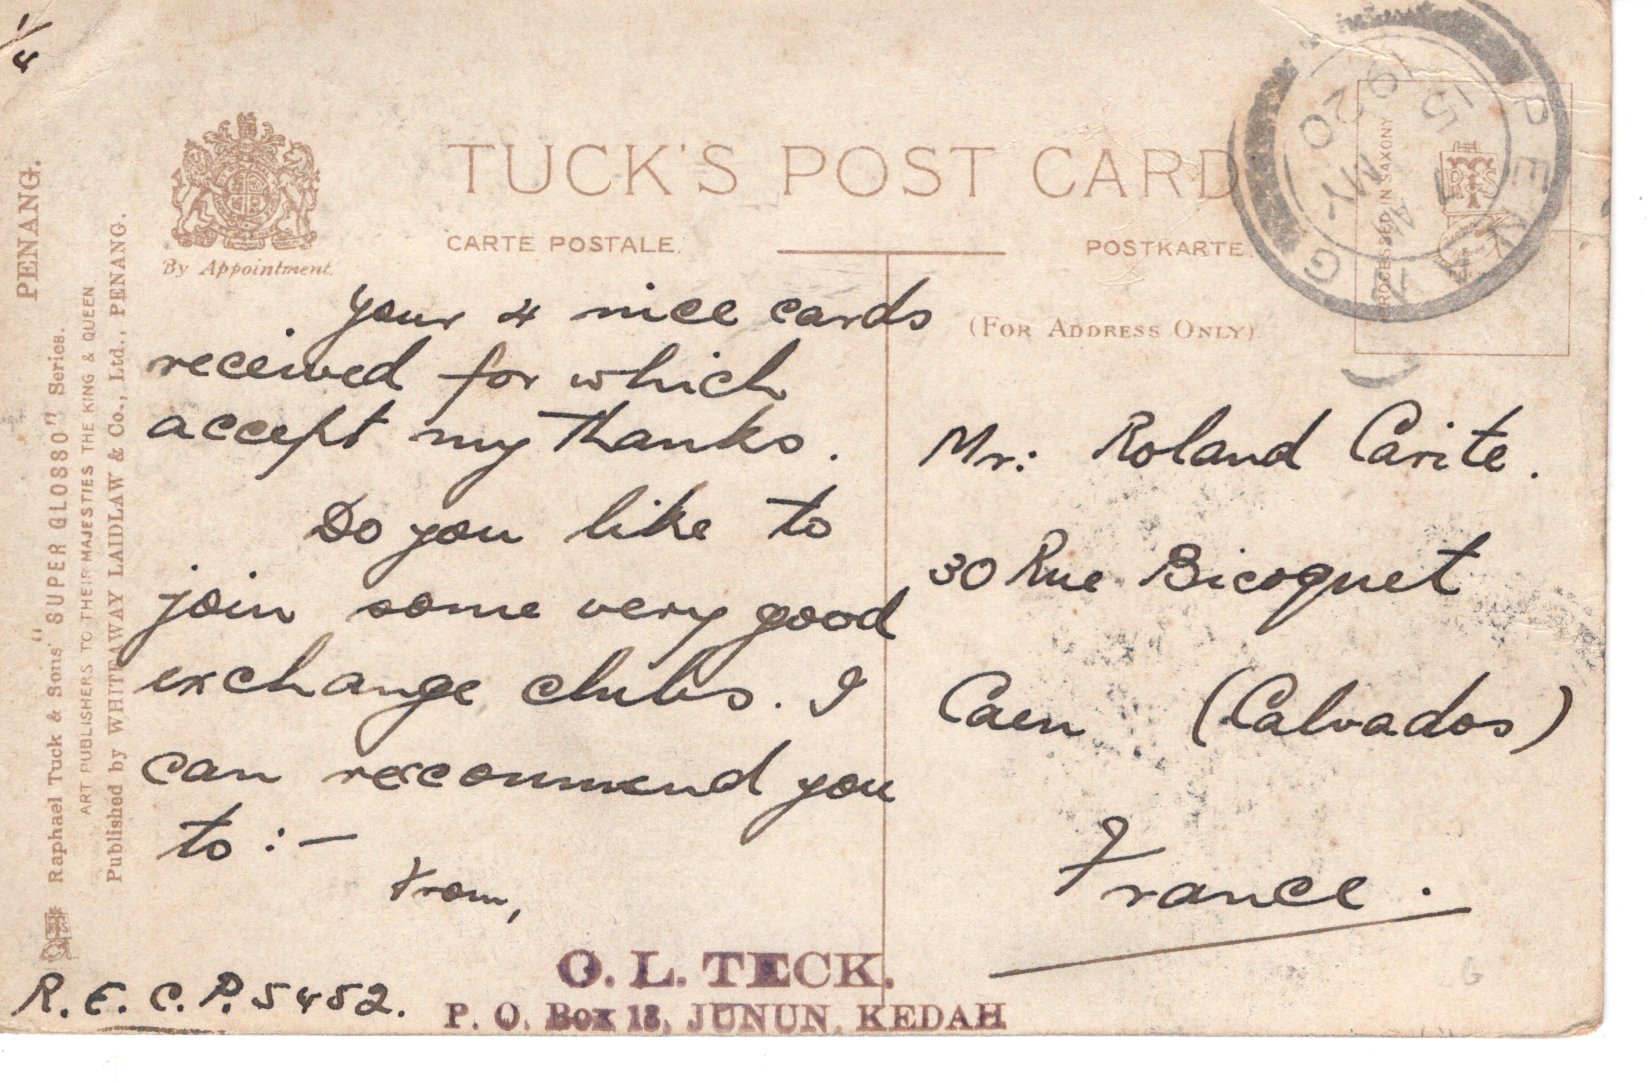 1/4
PENANG.
Raphael Tuck & Sons' "SUPER GLOSSO" Series.
ART PUBLISHERS TO THEIR MAJESTIES THE KING & QUEEN
Published by WHITEAWAY LAIDLAW & Co., Ltd., PENANG.
By Appointment.
TUCK'S POST CARD
CARTE POSTALE.
POSTKARTE.
(FOR ADDRESS ONLY)
PROCESSED IN SAXONY
PENANG
AM
15 MY
1920
your 4 nice cards
received for which
accept my thanks.
Do you like to
join some very good
exchange clubs. I
can reccommend you
to :-
From,
O. L. TECK.
P. O. Box 18, JUNUN, KEDAH
R. E. C. P. 5452.
Mr: Roland Carite.
30 Rue Bicoquet
Caen (Calvados)
France.
6